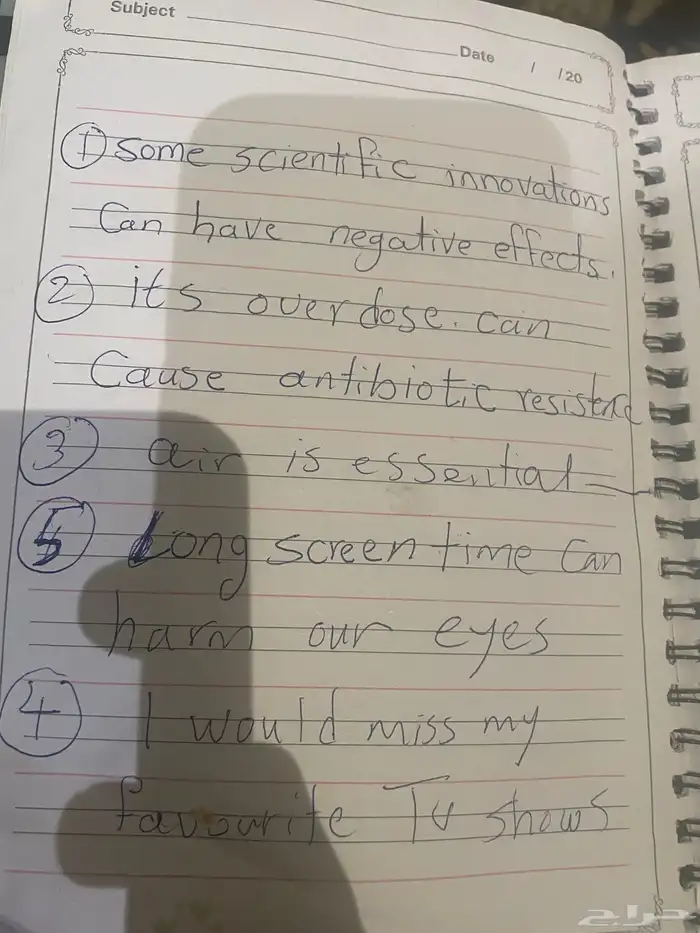 Subject
Date / /20
① some scientific innovations
Can have negative effects.
② its overdose. can
Cause antibiotic resistence
③ air is essential
⑤ Long screen time Can
harm our eyes
④ I would miss my
favourite Tv shows
حراج